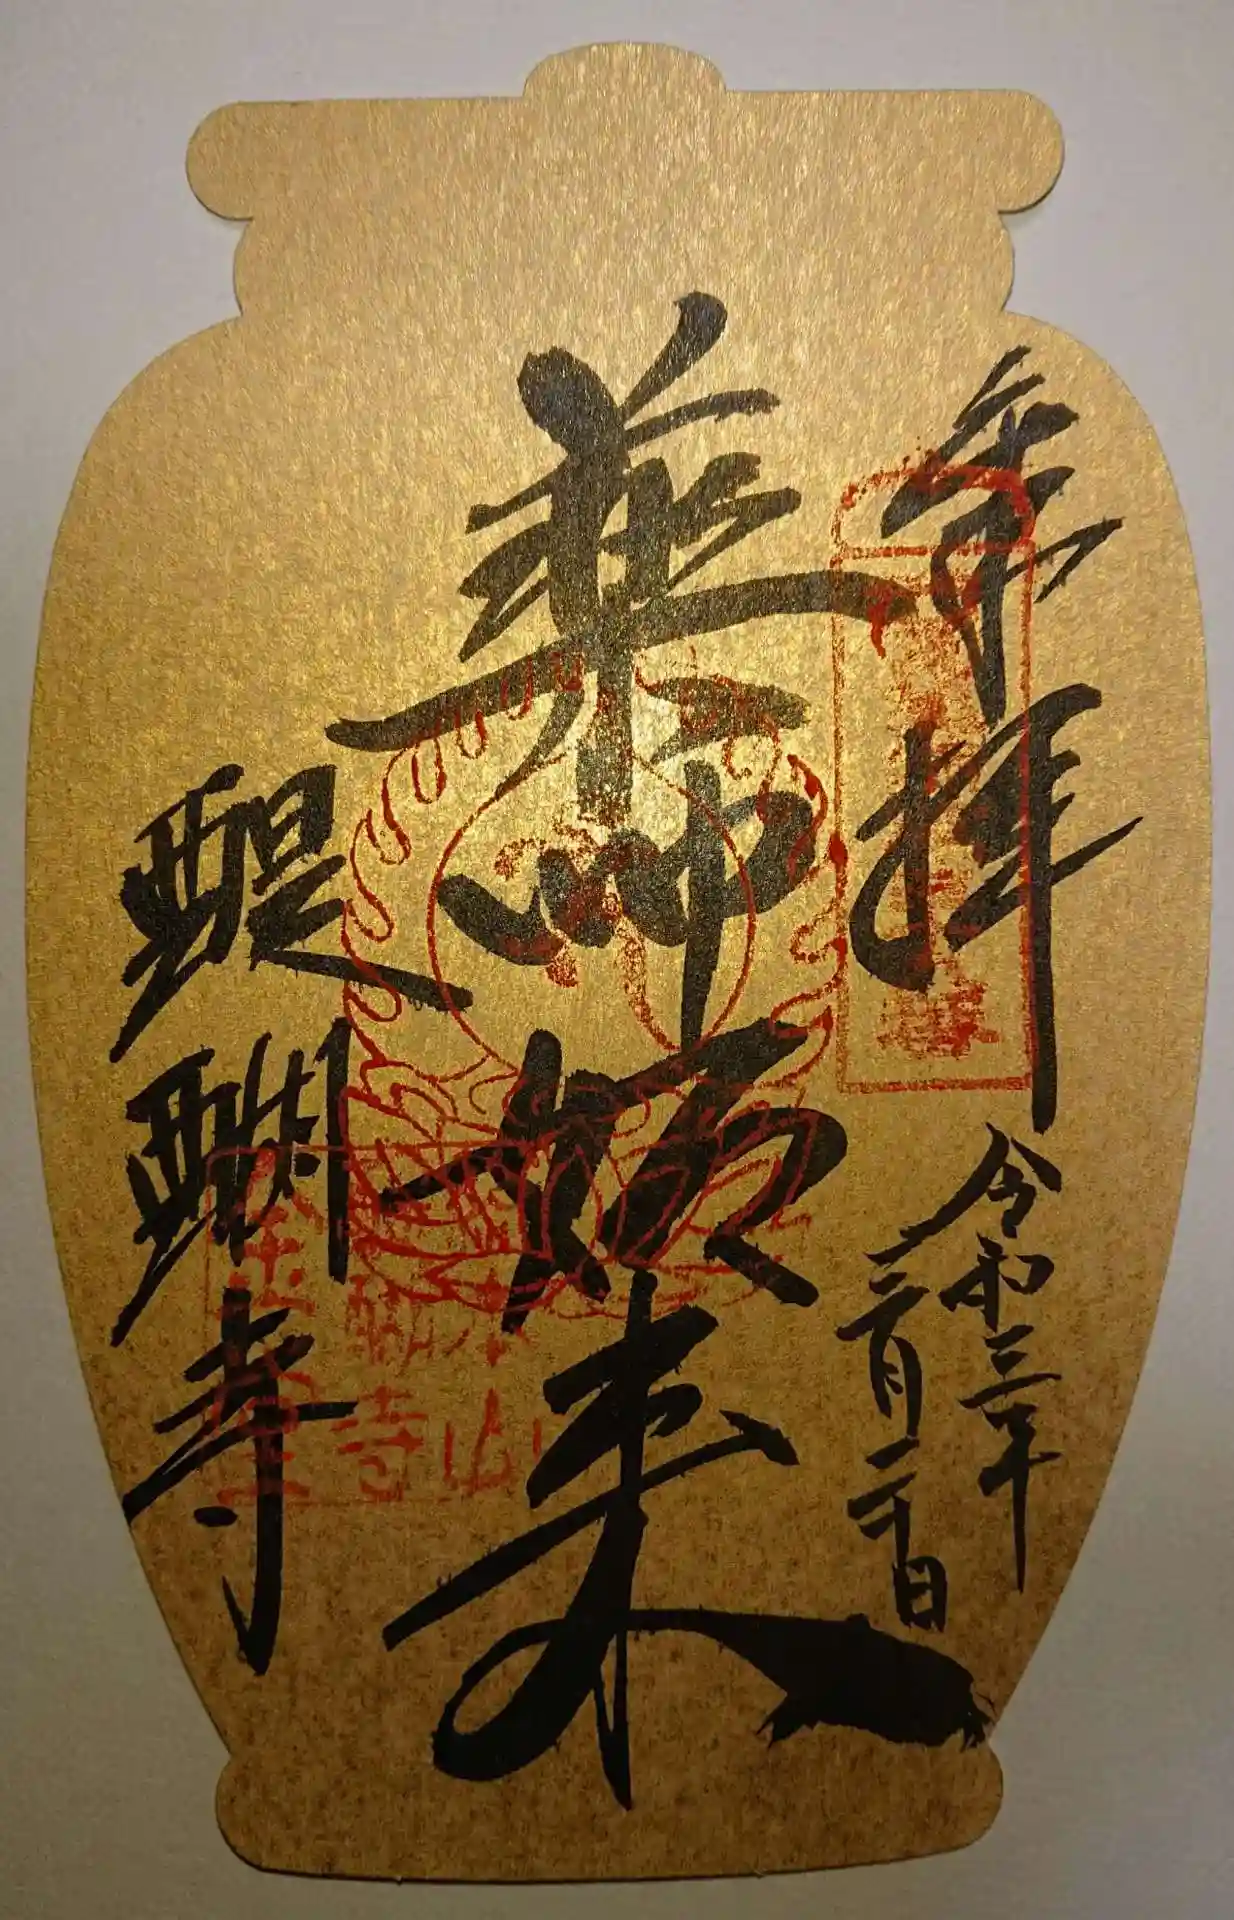 奉拝
令和三年
二月二十日
薬師如来
醍醐寺